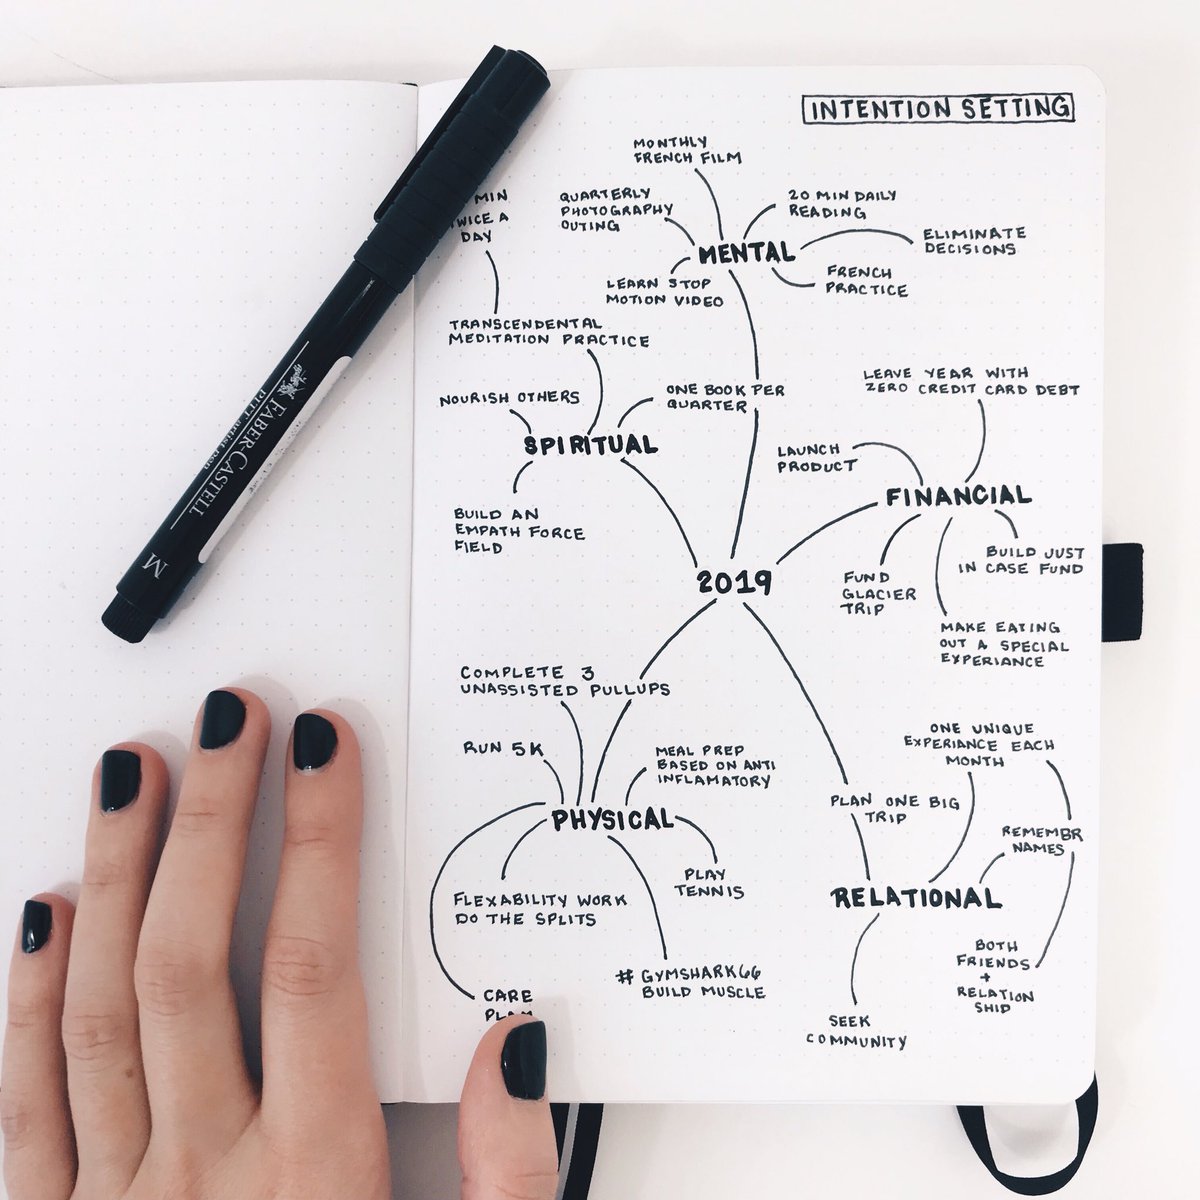 INTENTION SETTING
MONTHLY
FRENCH FILM
QUARTERLY
PHOTOGRAPHY
OUTING
20 MIN DAILY
READING
ELIMINATE
DECISIONS
MENTAL
FRENCH
PRACTICE
LEARN STOP
MOTION VIDEO
MIN
TWICE A
DAY
TRANSCENDENTAL
MEDITATION PRACTICE
NOURISH OTHERS
ONE BOOK PER
QUARTER
SPIRITUAL
BUILD AN
EMPATH FORCE
FIELD
LEAVE YEAR WITH
ZERO CREDIT CARD DEBT
LAUNCH
PRODUCT
FINANCIAL
BUILD JUST
IN CASE FUND
FUND
GLACIER
TRIP
MAKE EATING
OUT A SPECIAL
EXPERIANCE
2019
COMPLETE 3
UNASSISTED PULLUPS
RUN 5K
MEAL PREP
BASED ON ANTI
INFLAMATORY
PHYSICAL
PLAY
TENNIS
FLEXABILITY WORK
DO THE SPLITS
#GYMSHARK66
BUILD MUSCLE
CARE
PLAN
ONE UNIQUE
EXPERIANCE EACH
MONTH
PLAN ONE BIG
TRIP
REMEMBR
NAMES
RELATIONAL
BOTH
FRIENDS
+
RELATION
SHIP
SEEK
COMMUNITY
FABER-CASTELL
PITT artist pen
M